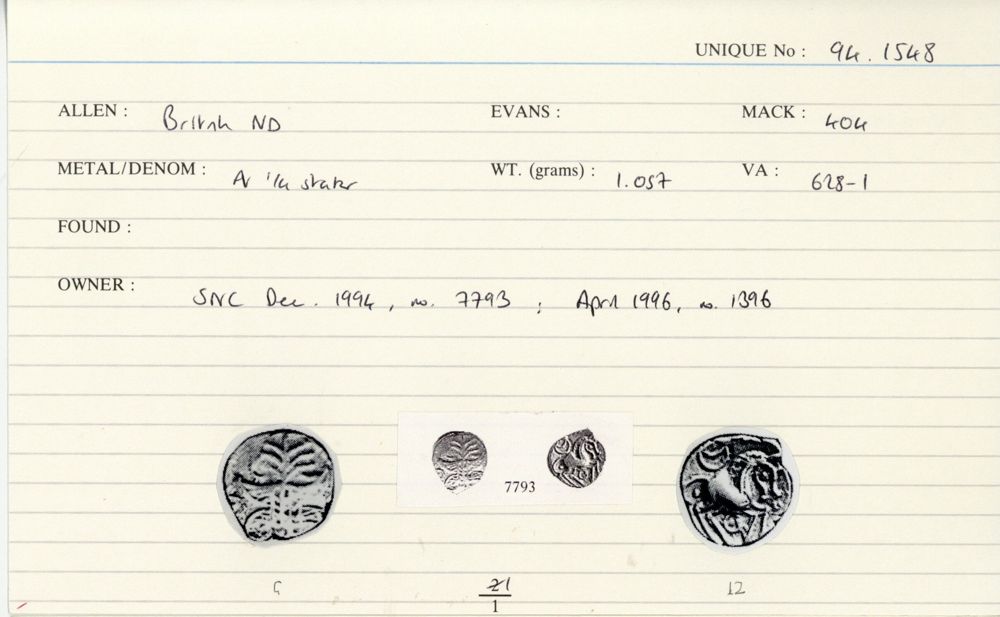 UNIQUE No : 94.1548
ALLEN : British ND EVANS : MACK : 404
METAL/DENOM : AV 1/4 stater WT. (grams) : 1.057 VA : 628-1
FOUND :
OWNER : SNC Dec. 1994, no. 7793 ; April 1996, no. 1396
7793
21
1
12